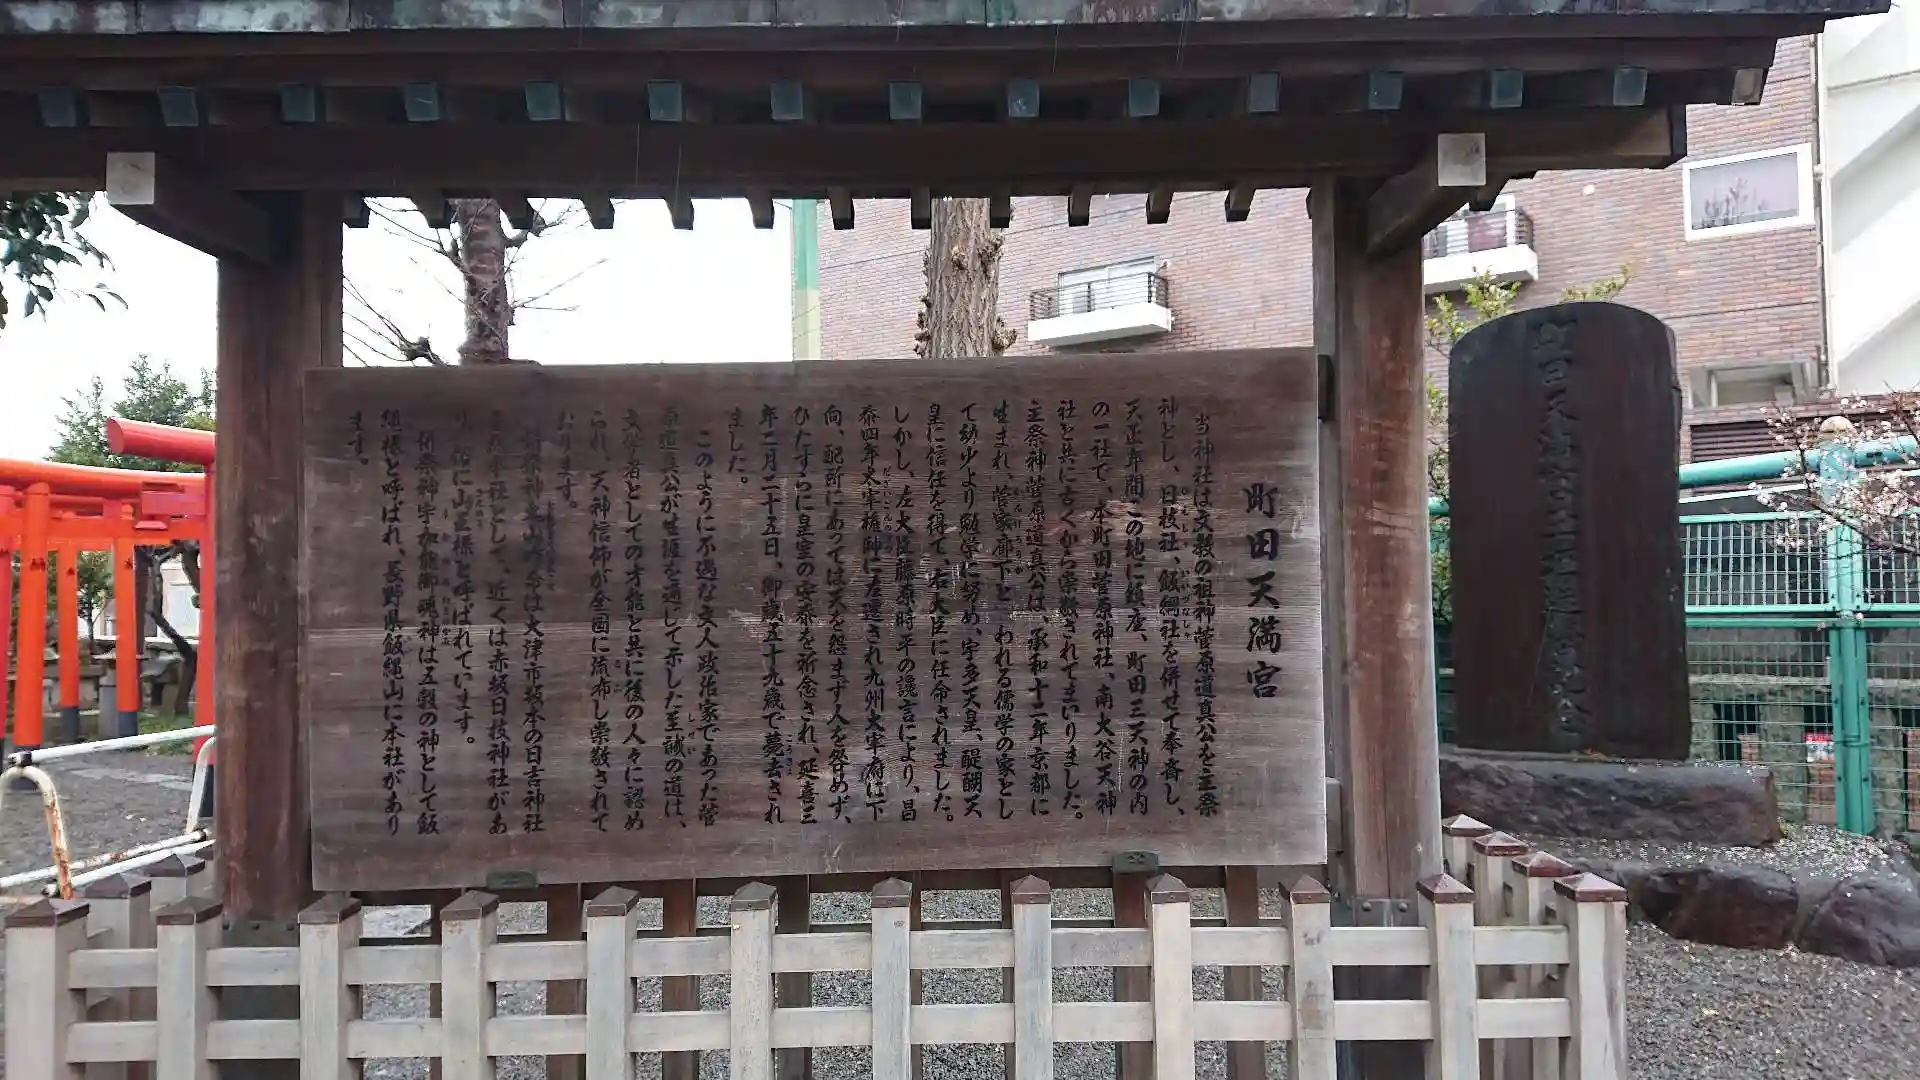 町田天満宮
当神社は文教の祖神菅原道真公を主祭
神とし、日枝社、飯綱社を併せて奉斎し、
天正年間この地に鎮座、町田三天神の内
の一社で、本町田菅原神社、南大谷天神
社と共に古くから崇敬されてまいりました。
主祭神菅原道真公は、承和十二年京都に
生まれ、菅家廊下といわれる儒学の家とし
て幼少より勉学に努め、宇多天皇、醍醐天
皇に信任を得て、右大臣に任命されました。
しかし、左大臣藤原時平の讒言により、昌
泰四年太宰権帥に左遷され九州太宰府に下
向、配所にあっては天を怨まず人を咎めず、
ひたすらに皇室の安泰を祈念され、延喜三
年二月二十五日、御歳五十九歳で薨去され
ました。
このように不遇な文人政治家であった菅
原道真公が生涯を通じて示した至誠の道は、
文学者としての才能と共に後の人々に認め
られ、天神信仰が全国に流布し崇敬されて
おります。
祭神大山咋命は大津市坂本の日吉神社
を本社として、近くは赤坂日枝神社があ
り、俗に山王様と呼ばれています。
併祭神宇加能御魂神は五穀の神として飯
綱様と呼ばれ、長野県飯縄山に本社があり
ます。
町田天満宮